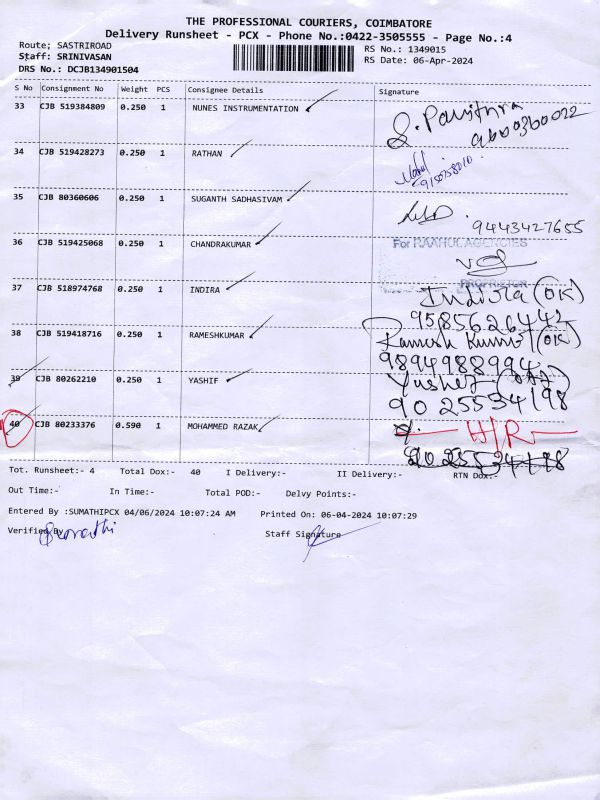 THE PROFESSIONAL COURIERS, COIMBATORE
Delivery Runsheet - PCX - Phone No.:0422-3505555 - Page No.:4
Route; SASTRIROAD
RS No.: 1349015
Staff: SRINIVASAN
RS Date: 06-Apr-2024
DRS No.: DCJB134901504
S No Consignment No Weight PCS Consignee Details Signature
33 CJB 519384809 0.250 1 NUNES INSTRUMENTATION
S. Pavithra
9600360022
34 CJB 519428273 0.250 1 RATHAN
35 CJB 80360606 0.250 1 SUGANTH SADHASIVAM
9443427655
36 CJB 519425068 0.250 1 CHANDRAKUMAR
For RAAHUL AGENCIES
PROPRIETOR
37 CJB 518974768 0.250 1 INDIRA
Indira (OK)
9585626442
38 CJB 519418716 0.250 1 RAMESHKUMAR
Ramesh Kumar (OK)
9894988994
39 CJB 80262210 0.250 1 YASHIF
9025534198
40 CJB 80233376 0.590 1 MOHAMMED RAZAK
H/R
Tot. Runsheet:- 4 Total Dox:- 40 I Delivery:- II Delivery:- RTN Dox:-
Out Time:- In Time:- Total POD:- Delvy Points:-
Entered By :SUMATHIPCX 04/06/2024 10:07:24 AM Printed On: 06-04-2024 10:07:29
Verified By
Staff Signature